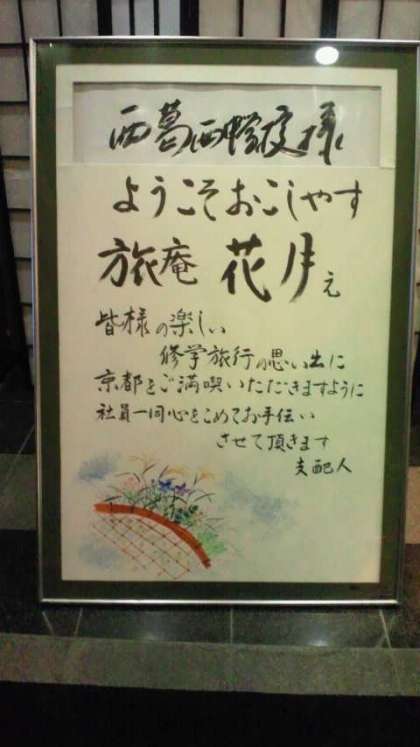 西葛西中学校様
ようこそおこしやす
旅庵 花月え
皆様の楽しい
修学旅行の思い出に
京都をご満喫いただきますように
社員一同心をこめてお手伝い
させて頂きます
支配人